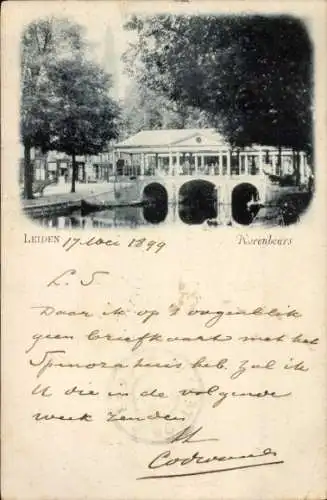 LEIDEN 17 Mei 1899 Korenbeurs
L. S
Daar ik op 't oogenblik
geen briefkaart met het
Spinoza huis heb. Zal ik
U die in de volgende
week zenden